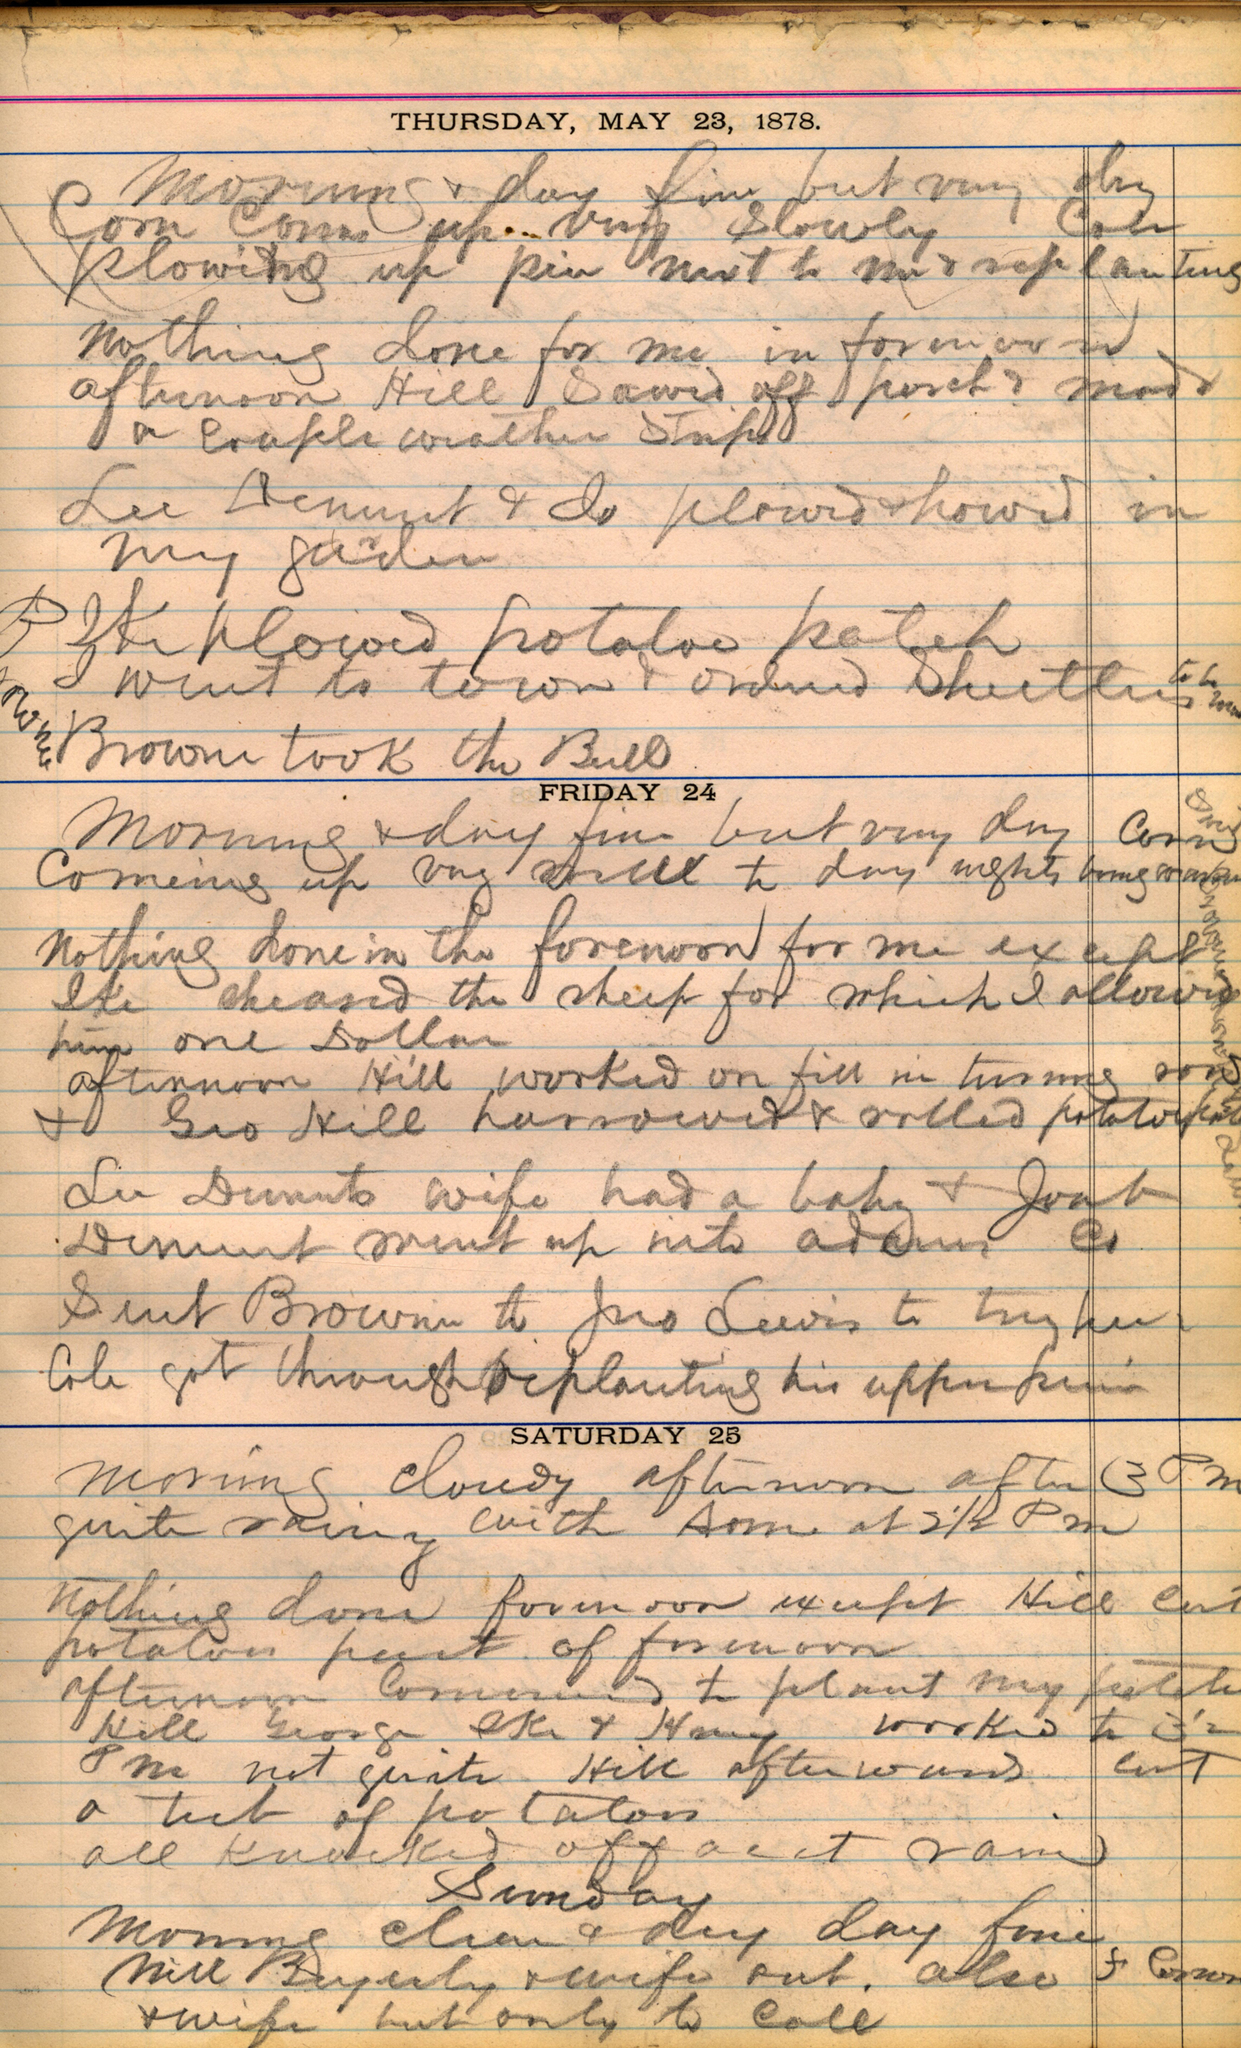 THURSDAY, MAY 23, 1878.
Morning & day fine but very dry
Corn Coms up very Slowly Cole
plowing up pin next to me & replanting
Nothing done for me in forenoon
afternoon Hill Sawed off porch & made
a Couple weather Strips
Lee Dement & Co plowed & howed in
my garden
Ike plowed potatoe patch
I went to town & ordered Shutters to be
Browni took the Bull
FRIDAY 24
Morning & day fine but very dry Corn
Comeing up vry well to day nights being warm
Nothing done in the forenoon for me except
Ike sheared the sheep for which I allowed
him one Dollar
afternoon Hill worked on fill in turning row
& Geo Hill harrowed & rolled potatoe patch
Lee Dements wife had a baby & Joab
Dement went up into adams Co
Sent Browni to Jno Lewis to try her
Cole got through Replanting his upper
SATURDAY 25
Morning cloudy afternoon after 3 P m
quite rainy with Som at 2 1/2 P m
Nothing done forenoon except Hill Cut
potatoes part of forenoon
afternoon Commenced to plant my potatoes
Hill George Ike & Henry worked to 3 1/2
P m not quite Hill afterwards cut
a tub of potatoes
all knocked off act rain
Sunday
Morning clear & dry day fine
Will Byerly & wife out. also
& wife but only to Call